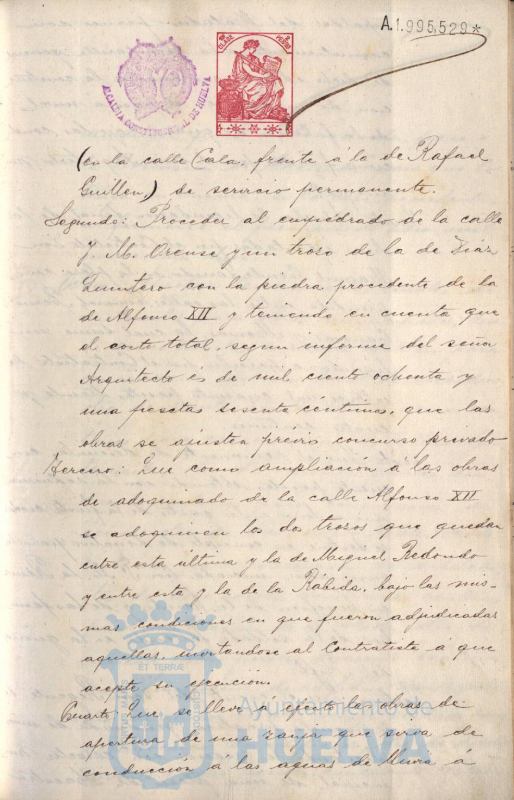 A.1.995,529*
CLASE
ALCALDIA CONSTITUCIONAL DE HUELVA
(en la calle Cala, frente á la de Rafael
Guillen) de servicio permanente.
Segundo: Proceder al empedrado de la calle
J. M. Orense y un troso de la de Diaz
Quintero con la piedra procedente de la
de Alfonso XII y teniendo en cuenta que
el costo total, segun informe del señor
Arquitecto és de mil ciento ochenta y
una pesetas sesenta céntimos, que las
obras se ajusten prévio concurso privado
Tercero: Que como ampliación á las obras
de adoquinado de la calle Alfonso XII
se adoquinen los dos trosos que quedan
entre esta última y la de Miguel Redondo
y entre esta y la de la Rábida, bajo las mis-
mas condiciones en que fueron adjudicadas
aquellas, invitándose al Contratista á que
acepte su ejecución.
Cuarto: Que se lleve á efecto las obras de
apertura de una zanja que sirva de
conducción á las aguas de lluvia á
ET TERRÆ
Ayuntamiento de
HUELVA